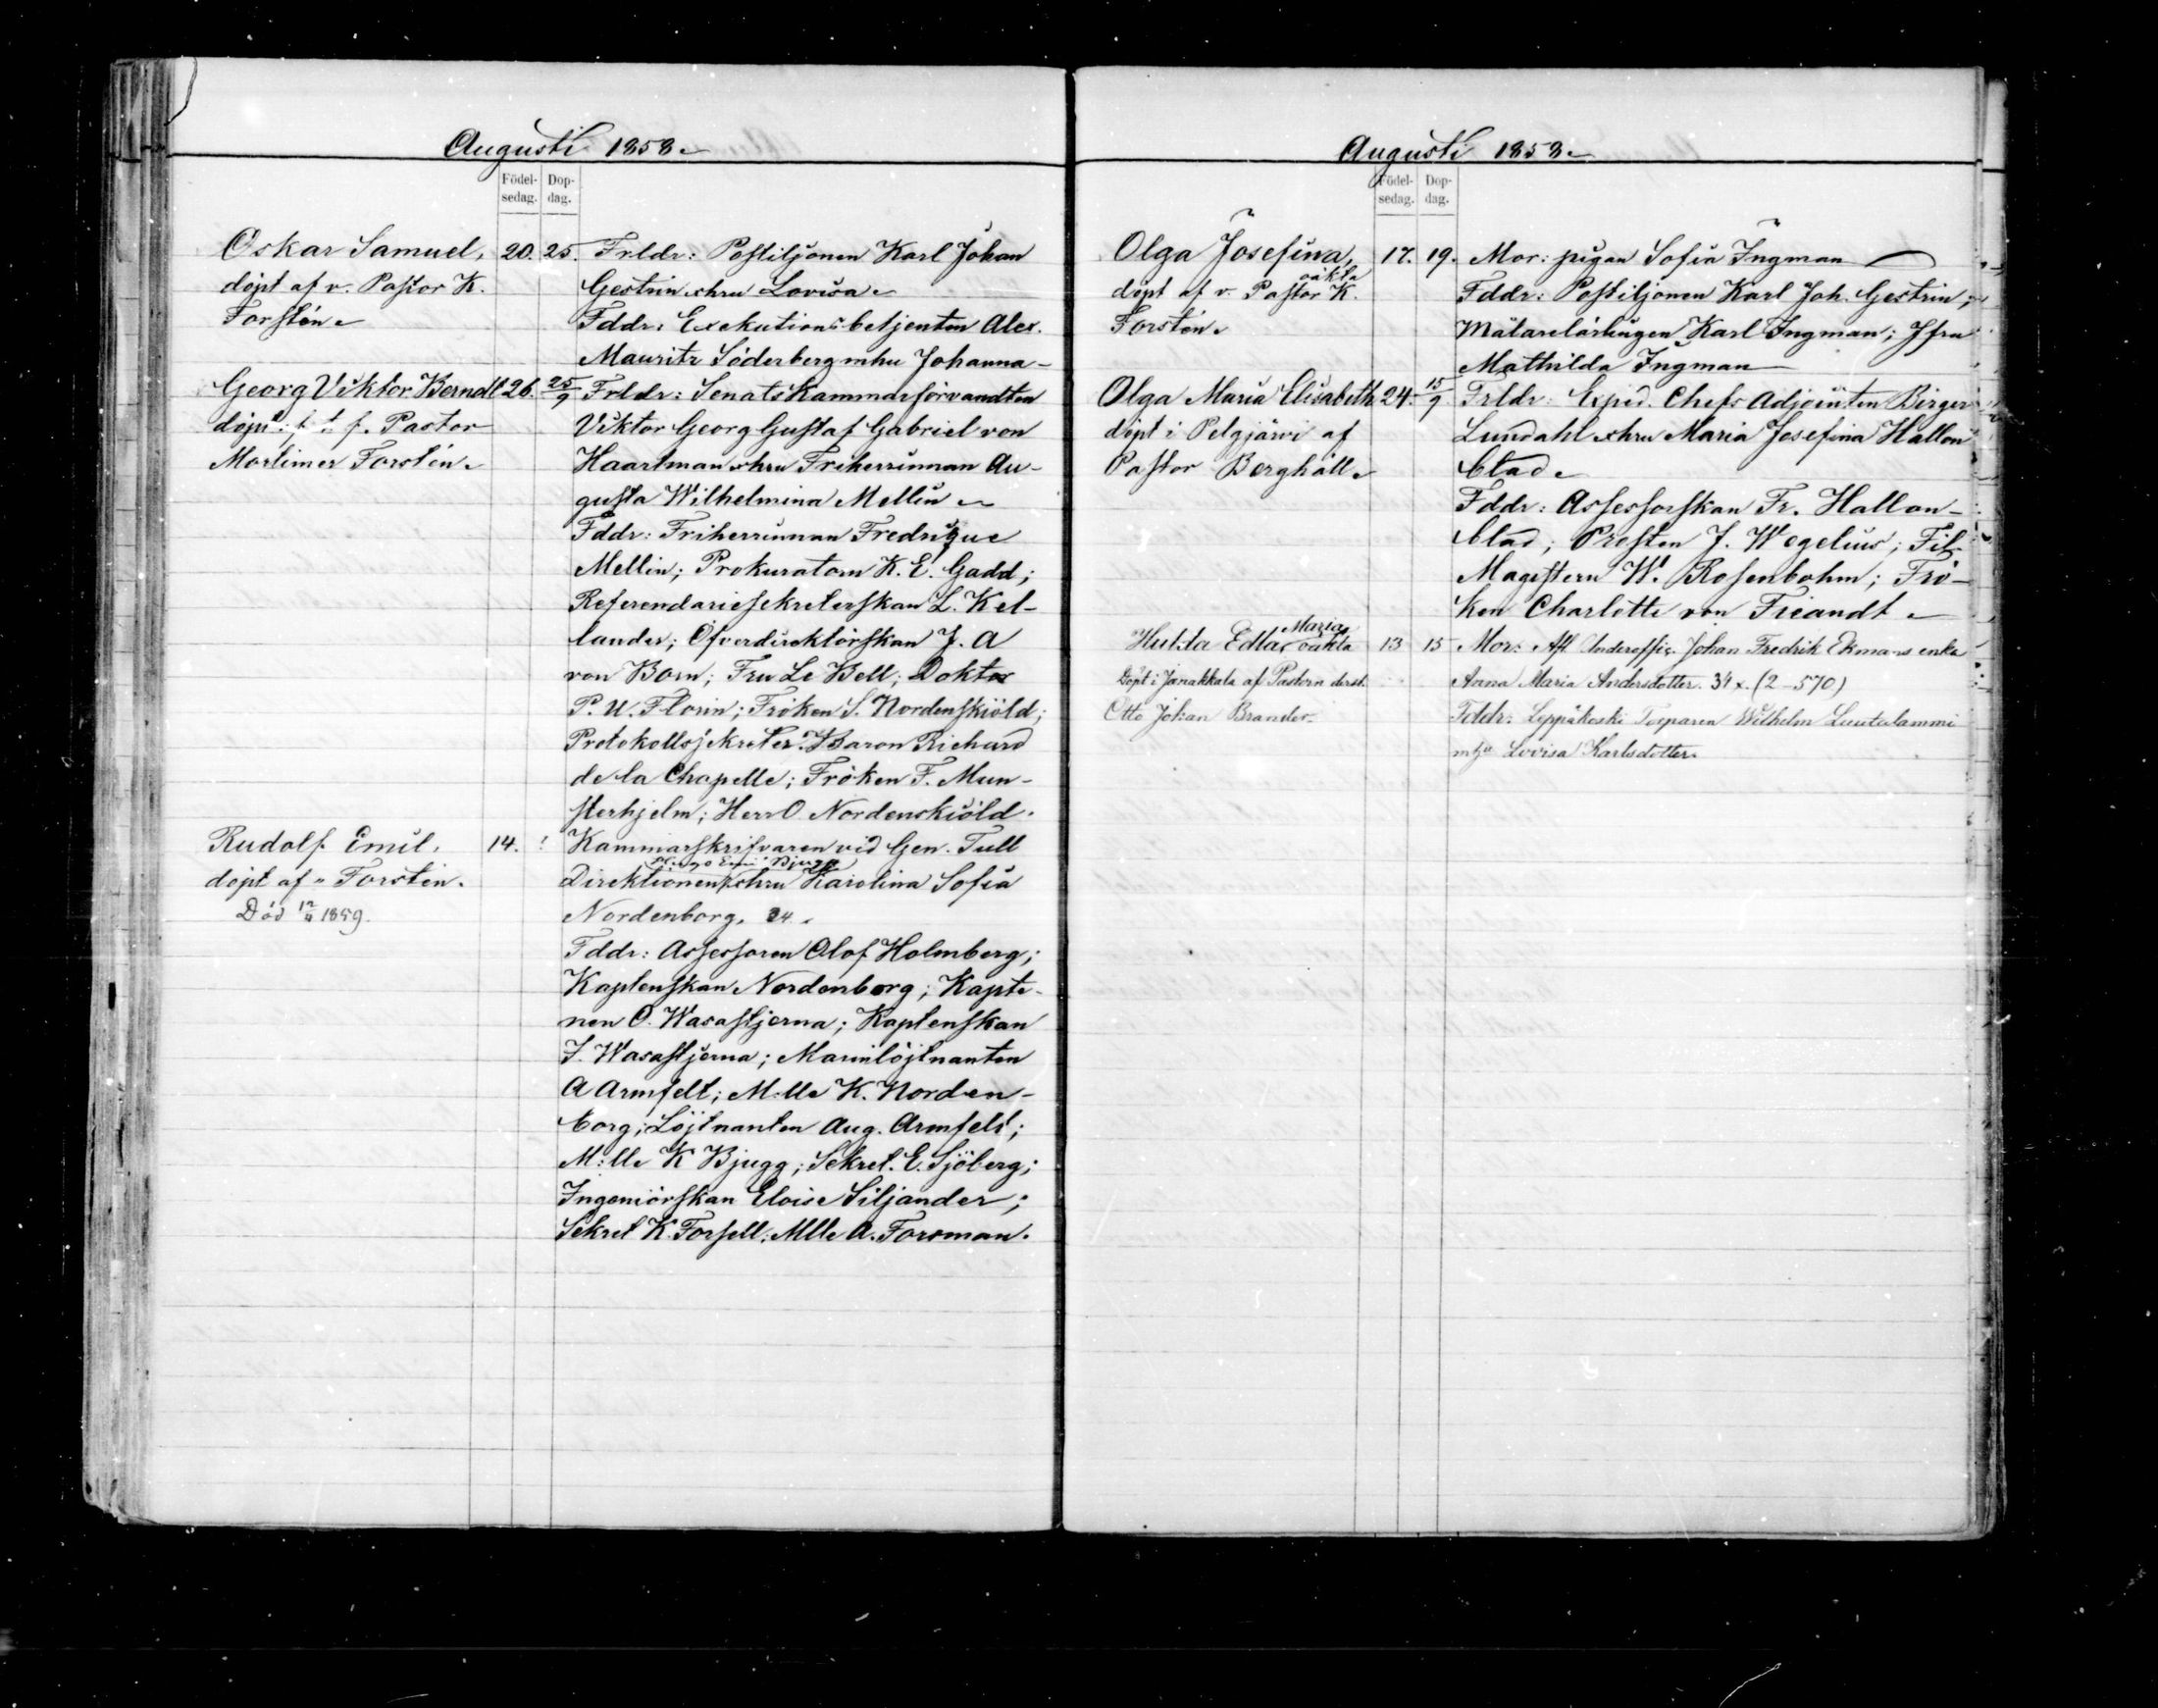 Augusti 1858
Födel- Dop-
sedag. dag.
Oskar Samuel,
döpt af v. Pastor K.
Forstén
20. 25.
Frldr: Postiljonen Karl Johan
Gestrin o hru Lovisa
Fddr: Exekutionsbetjenten Alex.
Mauritz Söderberg m hu Johanna
Georg Viktor Berndt
döpt f. Pastor
Mortimer Forstén
26. 25/9
Frldr: Senats Kammarförvandten
Viktor Georg Gustaf Gabriel von
Haartman o hru Friherrinnan Au-
gusta Wilhelmina Mellin
Fddr: Friherrinnan Fredrique
Mellin; Prokuratorn K. E. Gadd;
Referendariesekreterskan L. Kel-
lander; Öfverdirektörskan J. A
von Born; Fru Le Bell; Doktor
P. U. Florin; Fröken S. Nordenskiöld;
Protokollssekreter. Baron Richard
de la Chapelle; Fröken F. Mun-
sterhjelm; Herr O Nordenskiöld.
Rudolf Emil.
döpt af " Forstén.
Död 12/11 1859.
14.
Kammarskrifvaren vid Gen. Tull
Hugo Emil Bjugg
Direktionen o hru Karolina Sofia
Nordenborg. 34.
Fddr: Assessoren Olof Holmberg;
Kaptenskan Nordenborg; Kapte-
nen O. Wasastjerna; Kaptenskan
J. Wasastjerna; Marinlöjtnanten
A Armfelt; M:lle K. Norden-
borg; Löjtnanten Aug. Armfelt;
M:lle K Bjugg; Sekret. E. Sjöberg;
Ingeniörskan Eloise Siljander;
Sekret K. Forsell; Mlle A. Forsman.
Augusti 1858
Födel- Dop-
sedag. dag.
Olga Josefina,
oäkta
döpt af v. Pastor K.
Forstén
17. 19.
Mor: pigan Sofia Ingman
Fddr: Postiljonen Karl Joh. Gestrin;
Mätarelärlingen Karl Ingman; Jfru
Mathilda Ingman
Olga Maria Elisabeth
döpt i Pelgjärvi af
Pastor Berghäll
24. 15/9
Frldr: Exped. Chefs Adjointen Birger
Lundahl o hru Maria Josefina Hallon
blad
Fddr: Assessorskan Fr. Hallon-
blad; Prosten J. Wegelius; Fil.
Magistern W. Rosenbohm; Frö-
ken Charlotte von Fieandt
Maria
Hulda Edla oäkta
Döpt i Janakkala af Pastorn derst.
Otto Johan Brander
13 15
Mor: Afl Underoffic. Johan Fredrik Ekmans enka
Anna Maria Andersdotter. 34 x. (2-570)
Fddr: Leppäkoski Torparen Wilhelm Luutalammi
m hu Lovisa Karlsdotter.